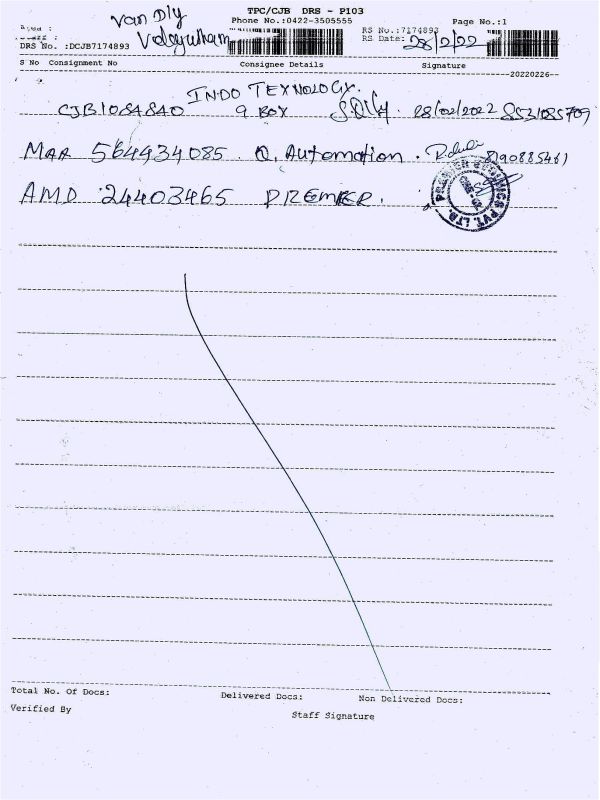 TPC/CJB DRS - P103
Van Dly
Phone No.:0422-3505555 Page No.:1
Area :
Staff : Velayutham RS No.:7174893
DRS No. :DCJB7174893 RS Date: 28/2/22
S No Consignment No Consignee Details Signature
--20220226--
INDO TEXNOLOGY.
CJB1084840 9 BOX 28/02/2022 8531085709
MAA 564934085. Q. Automation. 8190885461
AMD 24403465 PREMIER.
PVT. LTD.
Total No. Of Docs: Delivered Docs: Non Delivered Docs:
Verified By Staff Signature